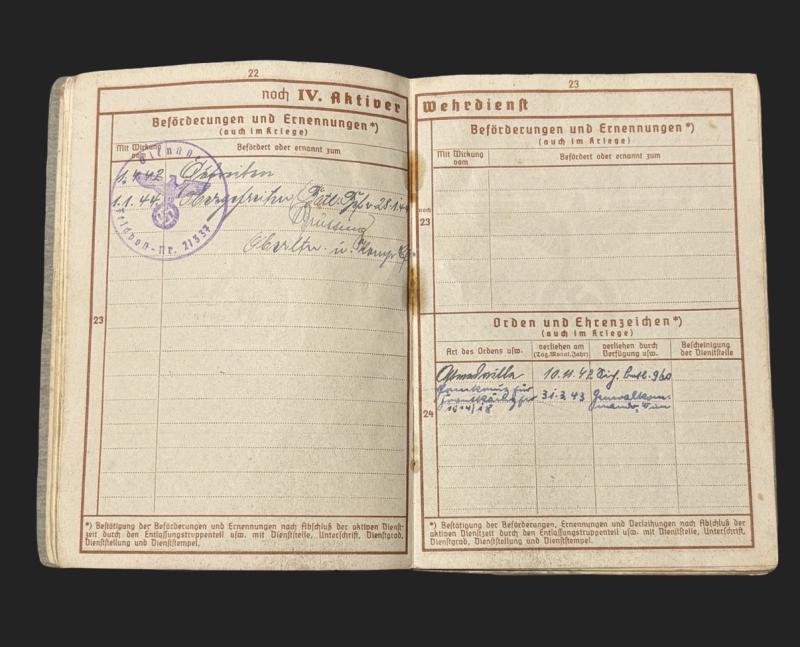 22
noch IV. Aktiver
Beförderungen und Ernennungen*)
(auch im Kriege)
Mit Wirkung vom
Befördert oder ernannt zum
1.4.42 Gefreiten
1.1.44 Obergefreiten
Oberltn. u. Komp.
Feldpost-Nr. 21337
23
*) Bestätigung der Beförderungen und Ernennungen nach Abschluß der aktiven Dienst-
zeit durch den Entlassungstruppenteil usw. mit Dienststelle, Unterschrift, Dienstgrad,
Dienststellung und Dienststempel.
23
Wehrdienst
Beförderungen und Ernennungen*)
(auch im Kriege)
Mit Wirkung vom
Befördert oder ernannt zum
noch
23
Orden und Ehrenzeichen*)
(auch im Kriege)
Art des Ordens usw.
verliehen am (Tag, Monat, Jahr)
verliehen durch Verfügung usw.
Bescheinigung der Dienststelle
10.11.42
für
31.3.43 Generalkom-
1914/18
24
*) Bestätigung der Beförderungen, Ernennungen und Verleihungen nach Abschluß der
aktiven Dienstzeit durch den Entlassungstruppenteil usw. mit Dienststelle, Unterschrift,
Dienstgrad, Dienststellung und Dienststempel.